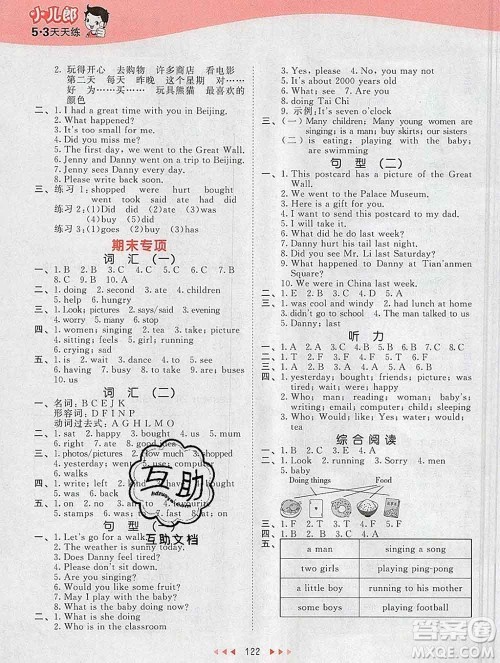 小儿郎
5·3天天练
2. 玩得开心 去购物 许多商店 看电影
第二天 每天 昨晚 这个星期 对……
好 为……买…… 玩具熊猫 最喜欢的
颜色
二、1. I had a great time with you in Beijing.
2. What happened?
3. It's too small for me.
4. Did you miss me?
5. The first day, we went to the Great Wall.
6. Jenny and Danny went on a trip to Beijing.
7. Jenny sees Danny every day.
8. Please write back soon.
三、练习 1: shopped were hurt bought
went took said ate had did
练习 2: (1)Did (2)did (3)does (4)do
期末专项
词 汇 (一)
一、1. B 2. B 3. C 4. C 5. A 6. B 7. A
8. C 9. B 10. A
二、1. doing 2. sending 3. ate 4. children
5. help 6. hungry
三、1. Look; pictures 2. says/said 3. evening
4. worry 5. many 6. sleep
四、1. women; singing 2. tea 3. take; picture
4. sitting; boys 5. feel 6. girl; running
7. crying; sad
五、1. is 2. wait 3. dance 4. sit 5. wants
6. having 7. busy 8. to take 9. to buy
10. us
词 汇 (二)
一、名词: B C E J K
形容词: D F I N P
动词过去式: A G H L M O
二、1. sat 2. happy 3. bought 4. looked
5. Did 6. write 7. ate 8. good
三、1. photos/pictures 2. shopping
4. yesterday 5. went
8. walks
四、1. write; left 2. and 3. to 4.
6. on 7. in 8. to
五、1. walked 2. take 3.
5. send 6. was 7. fast 8.
句 型 (一)
一、1. Let's go for a walk.
2. The weather is sunny today.
3. Does Danny feel tired?
4. Please don't sit down.
5. Are you singing?
6. May I have the baby?
7. What did you do yesterday?
8. Would you like some fruit?
二、1. What are the children doing?
2. Who is in the classroom
3. Please sit 4. No; you may not
5. It's about 2000 years old
6. Did; have
7. Yes; did
8. doing Tai Chi
9. 示例: It's seven o'clock.
三、(一) Many children; Many young women are
singing; is a man; buy skirts; our sisters
(二) is eating; is playing with the baby;
are swimming
句 型 (二)
一、1. This postcard has a picture of the Great
Wall.
2. We went to the Palace Museum.
3. Here is a gift for you.
4. I want to send this postcard to my dad.
5. What did he do last week?
6. Danny always buys gifts for others.
7. Danny hurt his tail yesterday.
8. Where did Mr. Li go last Saturday?
9. Danny bought a camera at Tian'anmen
Square?
10. We were in China last week.
二、1. was cool and windy 2. did; have dinner
3. didn't go to school 4. The man talked to us
5. Danny; last
听 力
一、1. A 2. A 3. C 4. C 5. A
二、1. B 2. B 3. A 4. B 5. A
三、1. F 2. T 3. F 4. F 5. T
四、1. yesterday; bought; friends; picture;
tired; were; happy
2. was; sent; friend; picture; was; wait;
wrote; like; want
综 合 阅 读
一、1. B 2. C 3. A 4. A 5. C
二、1. Look 2. running 3. Sorry 4. man
5. baby
三、Doing things Food
四、1. T 2. F 3. F 4. F 5. F
五、a man singing a song
two girls playing ping-pong
a little boy running to his mother
some boys playing football
互助
互助文档
122
答案圈
MXQE.COM